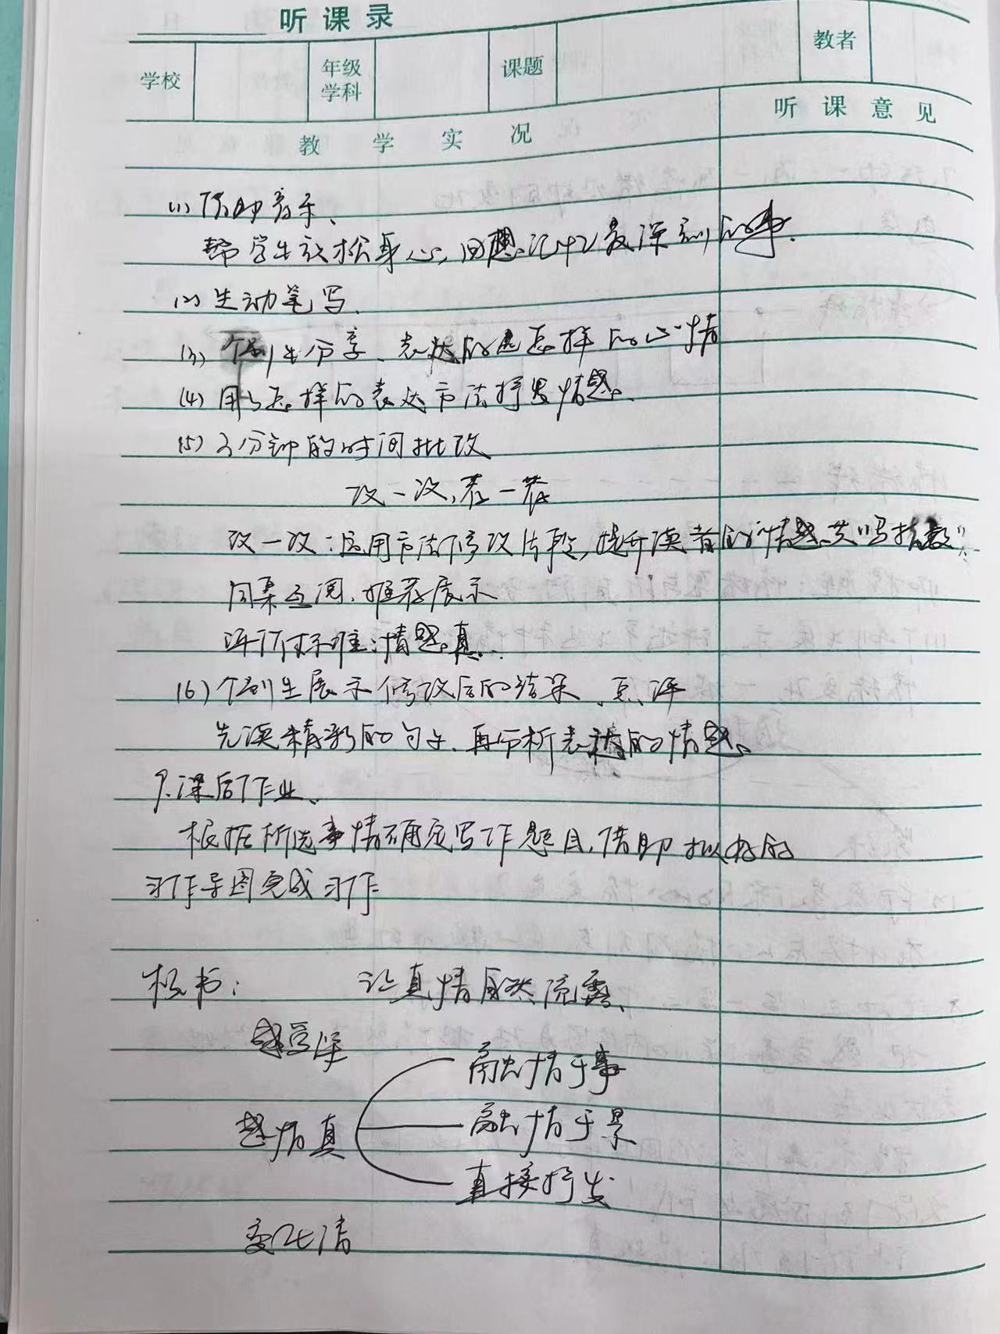 听课录
学校 年级学科 课题 教者
教学实况 听课意见
(1) 借助音乐、
帮学生放松身心,回想记忆最深刻的事.
(2) 生动笔写.
(3) 个别生分享、表达的是怎样的心情
(4) 用了怎样的表达方法抒发情感.
(5) 3分钟的时间批改
改一改,荐一荐
改一改:运用方法修改片段,提升读者的"情感共鸣指数"
同桌互阅,推荐展示
评价标准:情感真.
(6) 个别生展示修改后的结果、点评
先读精彩的句子、再分析表达的情感。
9.课后作业、
根据所选事情确定写作题目,借助拟好的
习作导图完成习作
板书: 让真情自然流露、
感受深
融情于事
感情真 融情于景
直接抒发
变化清